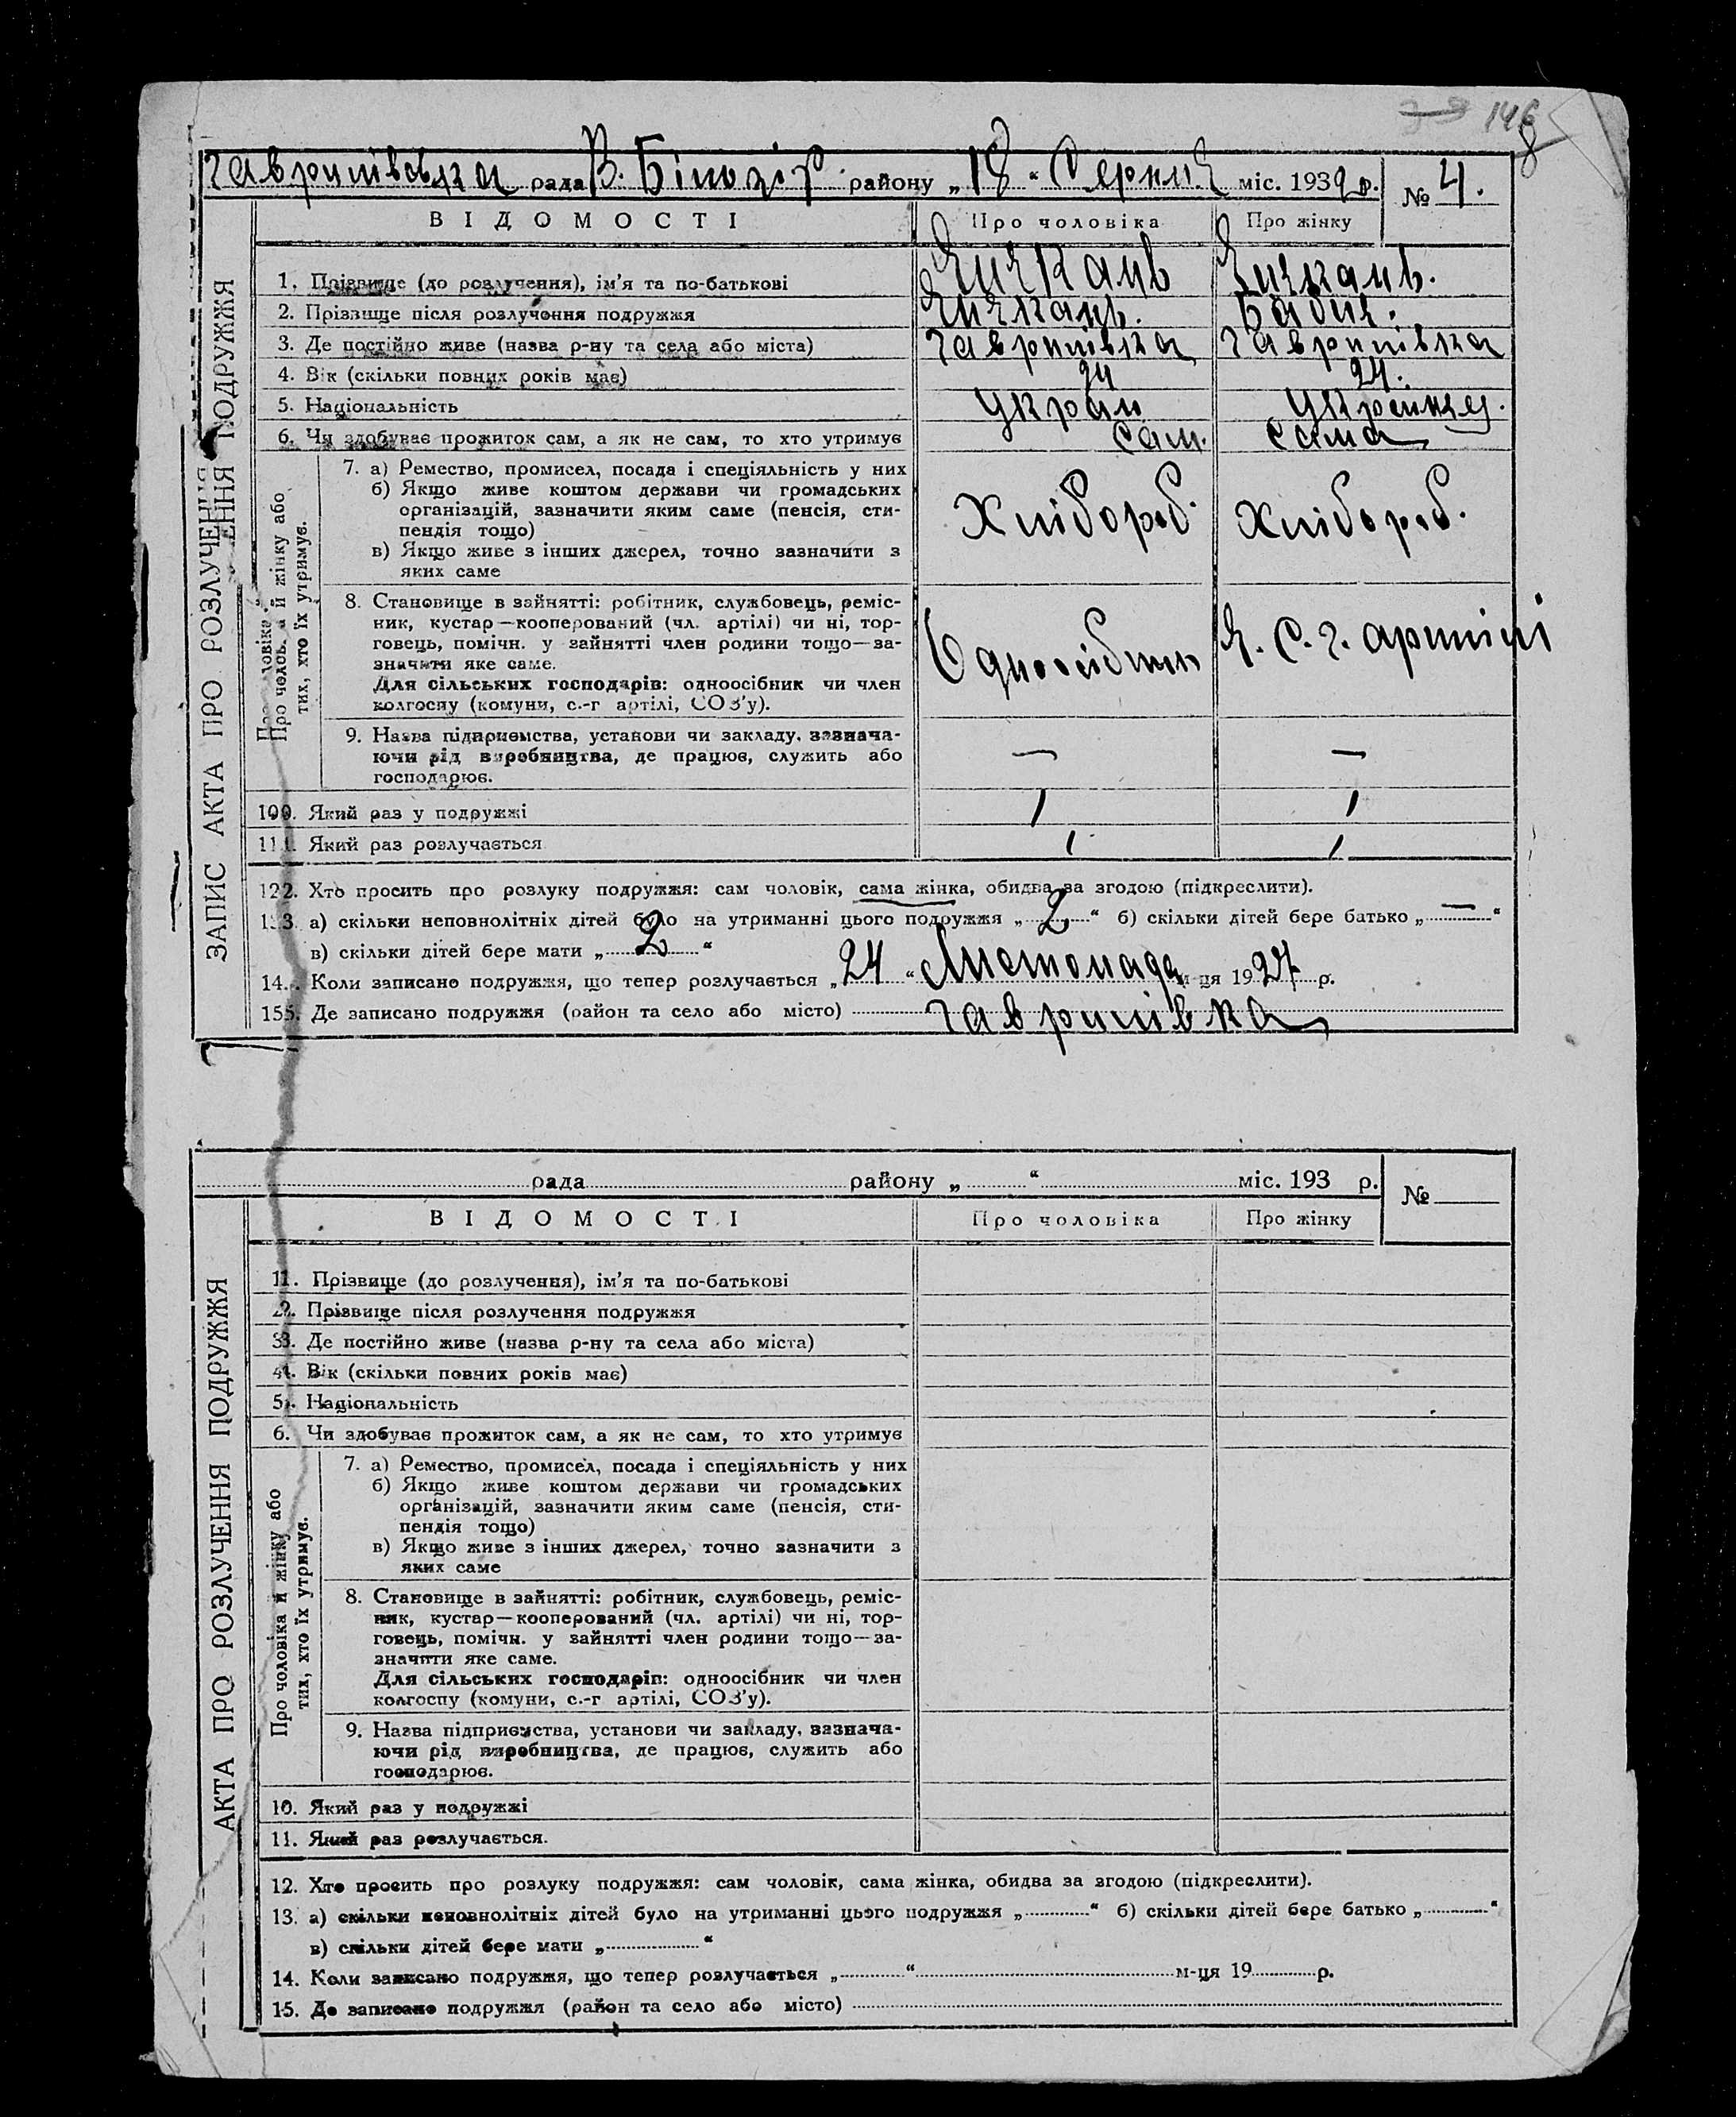 146
8
Гаврилівська рада В. Білозір району „18“ Серпня міс. 1939 р. № 4.
ВІДОМОСТІ Про чоловіка Про жінку
ЗАПИС АКТА ПРО РОЗЛУЧЕННЯ ПОДРУЖЖЯ
1. Прізвище (до розлучення), ім’я та по-батькові
2. Прізвище після розлучення подружжя Бабич.
3. Де постійно живе (назва р-ну та села або міста) Гаврилівка Гаврилівка
4. Вік (скільки повних років має) 24.
5. Національність Украін Украінка
6. Чи здобуває прожиток сам, а як не сам, то хто утримує сам. сама
Про чоловіка й жінку або
тих, хто їх утримує.
7. а) Ремество, промисел, посада і спеціяльність у них
б) Якщо живе коштом держави чи громадських
організацій, зазначити яким саме (пенсія, сти-
пендія тощо) Хлібороб. Хлібороб.
в) Якщо живе з інших джерел, точно зазначити з
яких саме
8. Становище в зайнятті: робітник, службовець, реміс-
ник, кустар—кооперований (чл. артілі) чи ні, тор-
говець, помічн. у зайнятті член родини тощо—за-
значити яке саме. Одноосібник С. г. артілі
Для сільських господарів: одноосібник чи член
колгоспу (комуни, с.-г артілі, СОЗ’у).
9. Назва підприємства, установи чи закладу, зазнача-
ючи рід виробництва, де працює, служить або — —
господарює.
10. Який раз у подружжі 1 1
11. Який раз розлучається 1 1
12. Хто просить про розлуку подружжя: сам чоловік, сама жінка, обидва за згодою (підкреслити).
13. а) скільки неповнолітніх дітей було на утриманні цього подружжя „2“ б) скільки дітей бере батько „—“
в) скільки дітей бере мати „2“
14. Коли записано подружжя, що тепер розлучається „24“ Листопада м-ця 1927 р.
15. Де записано подружжя (район та село або місто) Гаврилівка
рада району „ “ міс. 193 р. №
ВІДОМОСТІ Про чоловіка Про жінку
АКТА ПРО РОЗЛУЧЕННЯ ПОДРУЖЖЯ
1. Прізвище (до розлучення), ім’я та по-батькові
2. Прізвище після розлучення подружжя
3. Де постійно живе (назва р-ну та села або міста)
4. Вік (скільки повних років має)
5. Національність
6. Чи здобуває прожиток сам, а як не сам, то хто утримує
Про чоловіка й жінку або
тих, хто їх утримує.
7. а) Ремество, промисел, посада і спеціяльність у них
б) Якщо живе коштом держави чи громадських
організацій, зазначити яким саме (пенсія, сти-
пендія тощо)
в) Якщо живе з інших джерел, точно зазначити з
яких саме
8. Становище в зайнятті: робітник, службовець, реміс-
ник, кустар—кооперований (чл. артілі) чи ні, тор-
говець, помічн. у зайнятті член родини тощо—за-
значити яке саме.
Для сільських господарів: одноосібник чи член
колгоспу (комуни, с.-г артілі, СОЗ’у).
9. Назва підприємства, установи чи закладу, зазнача-
ючи рід виробництва, де працює, служить або
господарює.
10. Який раз у подружжі
11. Який раз розлучається.
12. Хто просить про розлуку подружжя: сам чоловік, сама жінка, обидва за згодою (підкреслити).
13. а) скільки неповнолітніх дітей було на утриманні цього подружжя „ “ б) скільки дітей бере батько „ “
в) скільки дітей бере мати „ “
14. Коли записано подружжя, що тепер розлучається „ “ м-ця 19 р.
15. Де записано подружжя (район та село або місто)